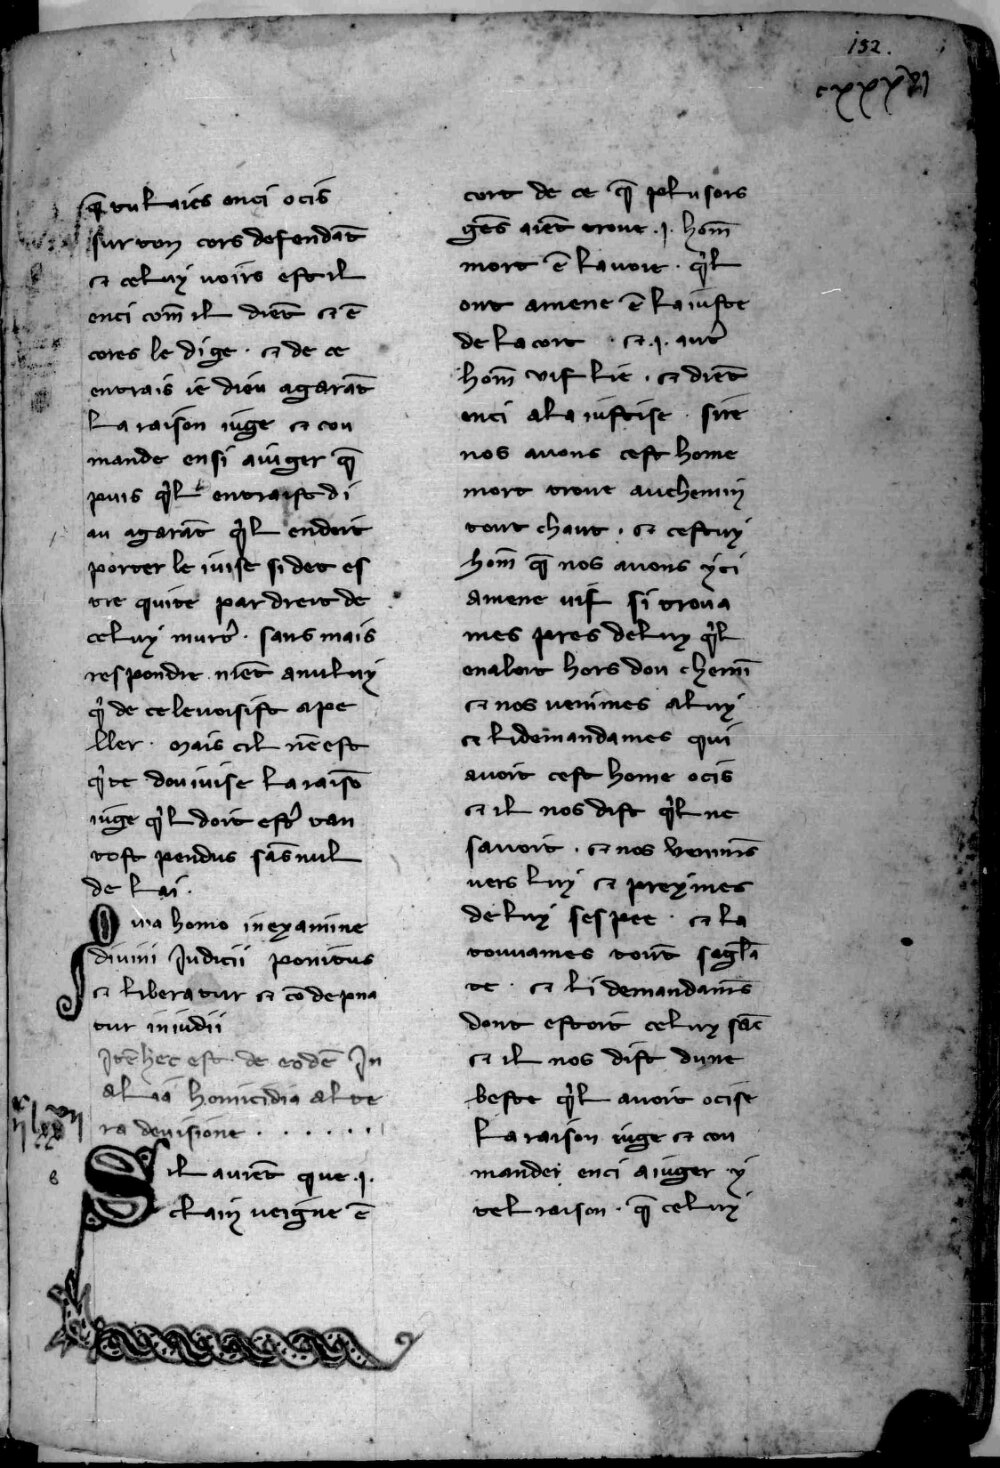 132.
cxxxvi
q̄ tu laies enci ocis
sur ton cors defendāt
⁊ celuy uoirs est il
enci com̄ il diēt ⁊ ē
cores le dige · ⁊ de ce
entrais iē dieu agarāt
la raison iuge ⁊ con
mande ensi aiuger q̄
puis qͥl entraist di
au agarāt qͥl endoit
porter le iuise si det es
tre quite par dreit de
celuy murtͬ · sans mais
respondre niēt anuluy
qͥ de ce le uoisist ape
ller · mais cil nē est
qͥte dou iuise la raisō
iuge qͥl doit estͬ tan
tost pendus sās nul
de lai ·
Quia homo in examine
diuini Iudicii ponitus
⁊ liberatur ⁊ cōdepna
tur in iudii
Itē hec est de eodē In
alia homicidia alte
ra deuisione · · · · · ·
Sil auiēt que ·j·
clain ueigne ē
cort de ce q̄ plusors
gēs aiēt troue ·j· hom̄
mort ē la uoie · qͥl
ont amene ē la iuste
de la cort · ⁊ ·j· autͬ
hom̄ vif lie · ⁊ diēt
enci a la iustise · sire
nos auons cest home
mort troue au chemin
tout chaut · ⁊ cestuy
hom̄ q̄ nos auons yci
amene uif si troua
mes pres de luy qͥl
enaloit hors dou chemī
⁊ nos uenimes a luy
⁊ li demandames qui
auoit cest home ocis
⁊ il nos dist qͥl ne
sauoit · ⁊ nos venīmes
uers luy ⁊ preymes
de luy sespee · ⁊ la
touuames toute saglā
te · ⁊ li demandam̄s
dont estoit celuy sāc
⁊ il nos dist dune
beste qͥl auoit ocise
la raison iuge ⁊ con
mandei enci aiuger y
tel raison · q̄ celuy